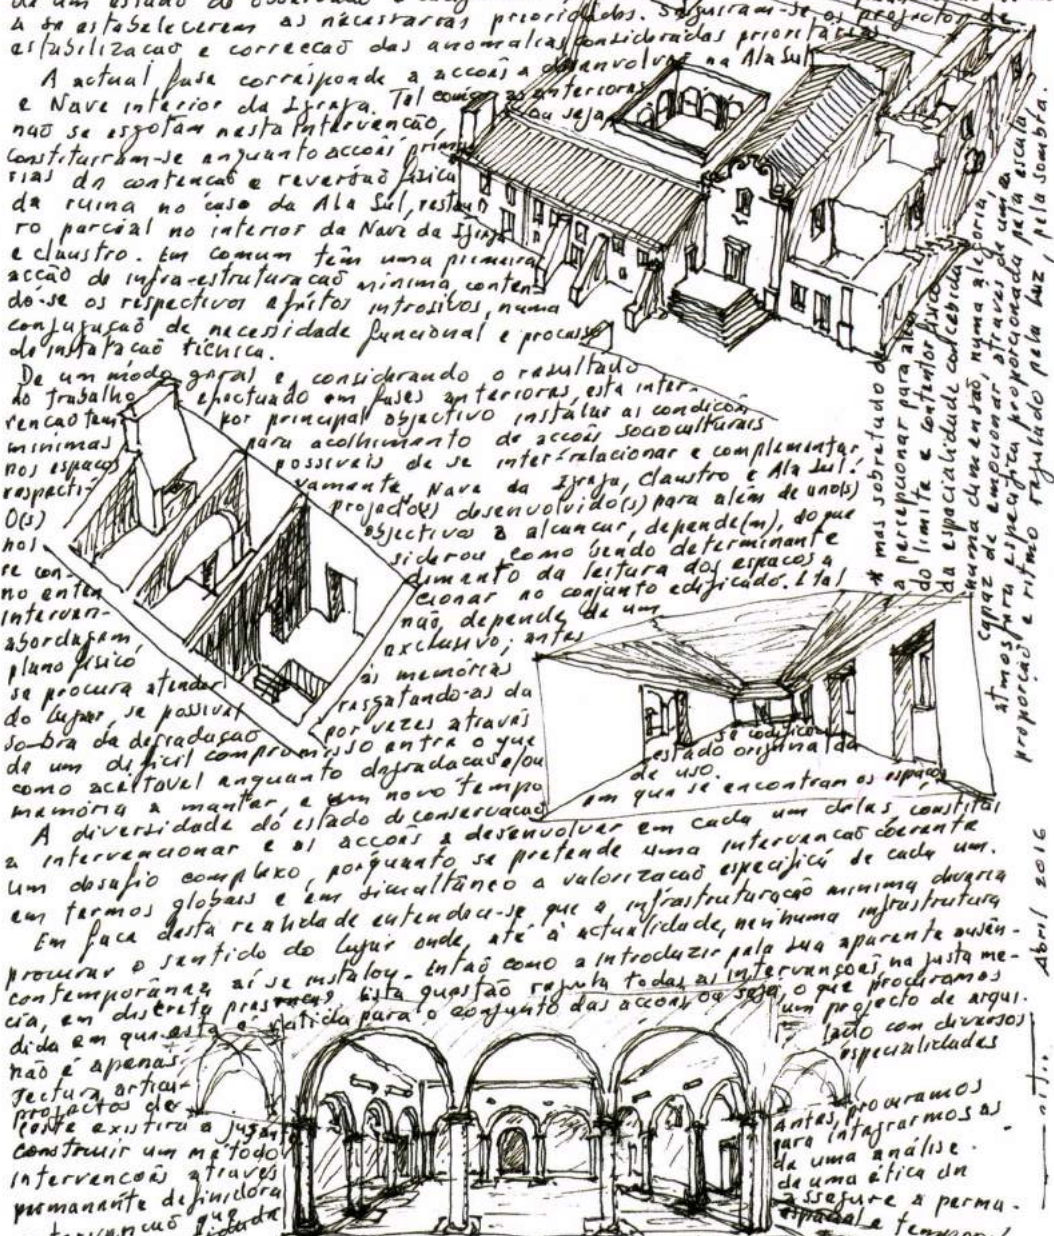 de um estado de
a se estabelecerem as necessárias prioridades. Seguiram-se os projectos de
estabilização e correcção das anomalias consideradas prioritárias.
A actual fase corresponde a acções a desenvolver na Ala Sul
e Nave interior da Igreja. Tal como as anteriores
não se esgotam nesta intervenção, ou seja
constituiram-se enquanto acções primá
rias de contenção e reversão física
da ruina no caso da Ala Sul, restau
ro parcial no interior da Nave da Igreja
e claustro. Em comum têm uma primeira
acção de infra-estruturação minima, conten
do-se os respectivos efeitos intrusivos, numa
conjugação de necessidade funcional e processo
de instalação técnica.
De um modo geral e, considerando o resultado
do trabalho efectuado em fases anteriores, esta inter-
venção tem por principal objectivo instalar as condições
minimas para acolhimento de acções socioculturais
nos espaços possiveis de se inter-relacionar e complementar,
respecti- vamente, Nave da Igreja, Claustro e Ala Sul.
O(s) projecto(s) desenvolvido(s) para além de uno(s)
nos objectivos a alcançar, depende(m), do que
se con- siderou como sendo determinante
no enten dimento da leitura dos espaços a
interven- cionar no conjunto edificado. Ital
abordagem não, depende de um
plano fisico exclusivo; antes
se procura atender às memórias
do lugar, se possivel resgatando-as da
so-bra da degradação por vezes através
de um dificil compromisso entre o que se codificou
como aceitavel enquanto degradação e/ou estado original da
memória a manter, e um novo tempo de uso.
A diversidade do estado de conservação em que se encontram os espaços
a intervencionar e as acções a desenvolver em cada um deles constitui
um desafio complexo, porquanto se pretende uma intervenção coerente
em termos globais e em simultâneo a valorização especifica de cada um.
Em face desta realidade entendeu-se que a infraestruturação minima deveria
procurar o sentido do lugar onde, até à actualidade, nenhuma infrastrutura
contemporânea aí se instalou. Então como a introduzir pela sua aparente ausên-
cia, em discreta presença? Esta questão rejeita todas as intervenções na justa me-
dida em que esta é válida para o conjunto das acções ou seja, o que procuramos
não é apenas um projecto de arqui-
tectura articu- lado com diversos
projectos de especialidades
construir um método Antes, procuramos
intervenções através para integrarmos as
permanente definidora de uma análise.
de uma ética de
assegure a perma-
espacial e
* mas sobretudo
a percepcionar para além
do limite e contentor fisico
da espacialidade concebida
numa dimensão, numa alegoria,
capaz de emocionar, através de uma
atmosfera especifica proporcionada pela escala
proporção e ritmo regulado pela luz, pela sombra.
Abril 2016